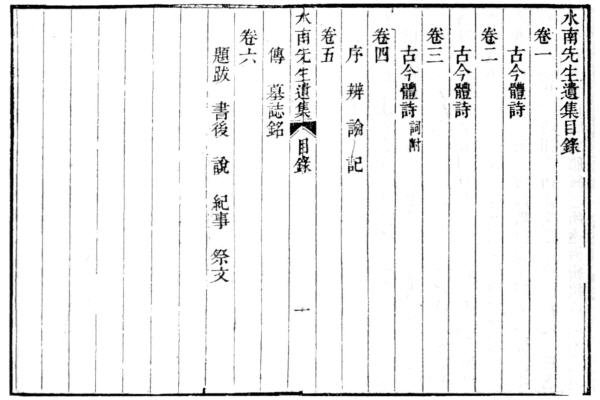 水南先生遺集目錄
卷一
古今體詩
卷二
古今體詩
卷三
古今體詩 詞附
卷四
序 辨 論 記
卷五
水南先生遺集 目錄 一
傳 墓誌銘
卷六
題跋 書後 說 紀事 祭文